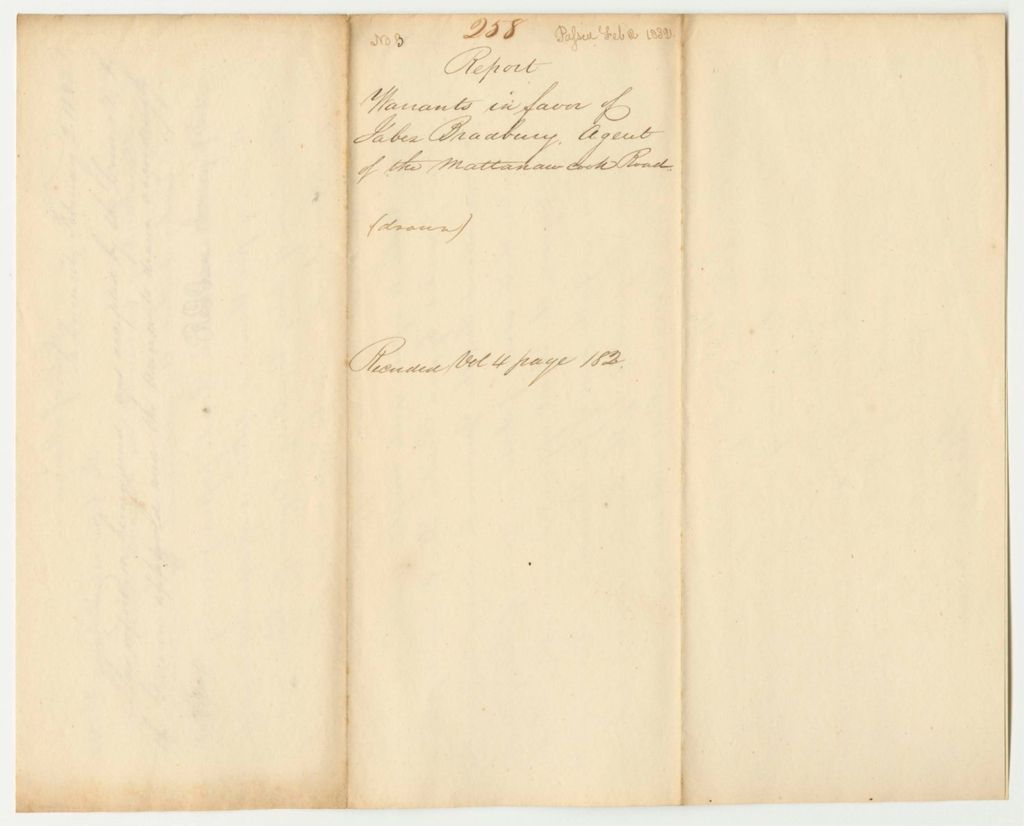 No 3 258 Passed Feb 2 1830.
Report
Warrants in favor of
Jabez Bradbury, Agent
of the Mattanawcook Road.
(drawn)
Recorded Vol 4 page 182.